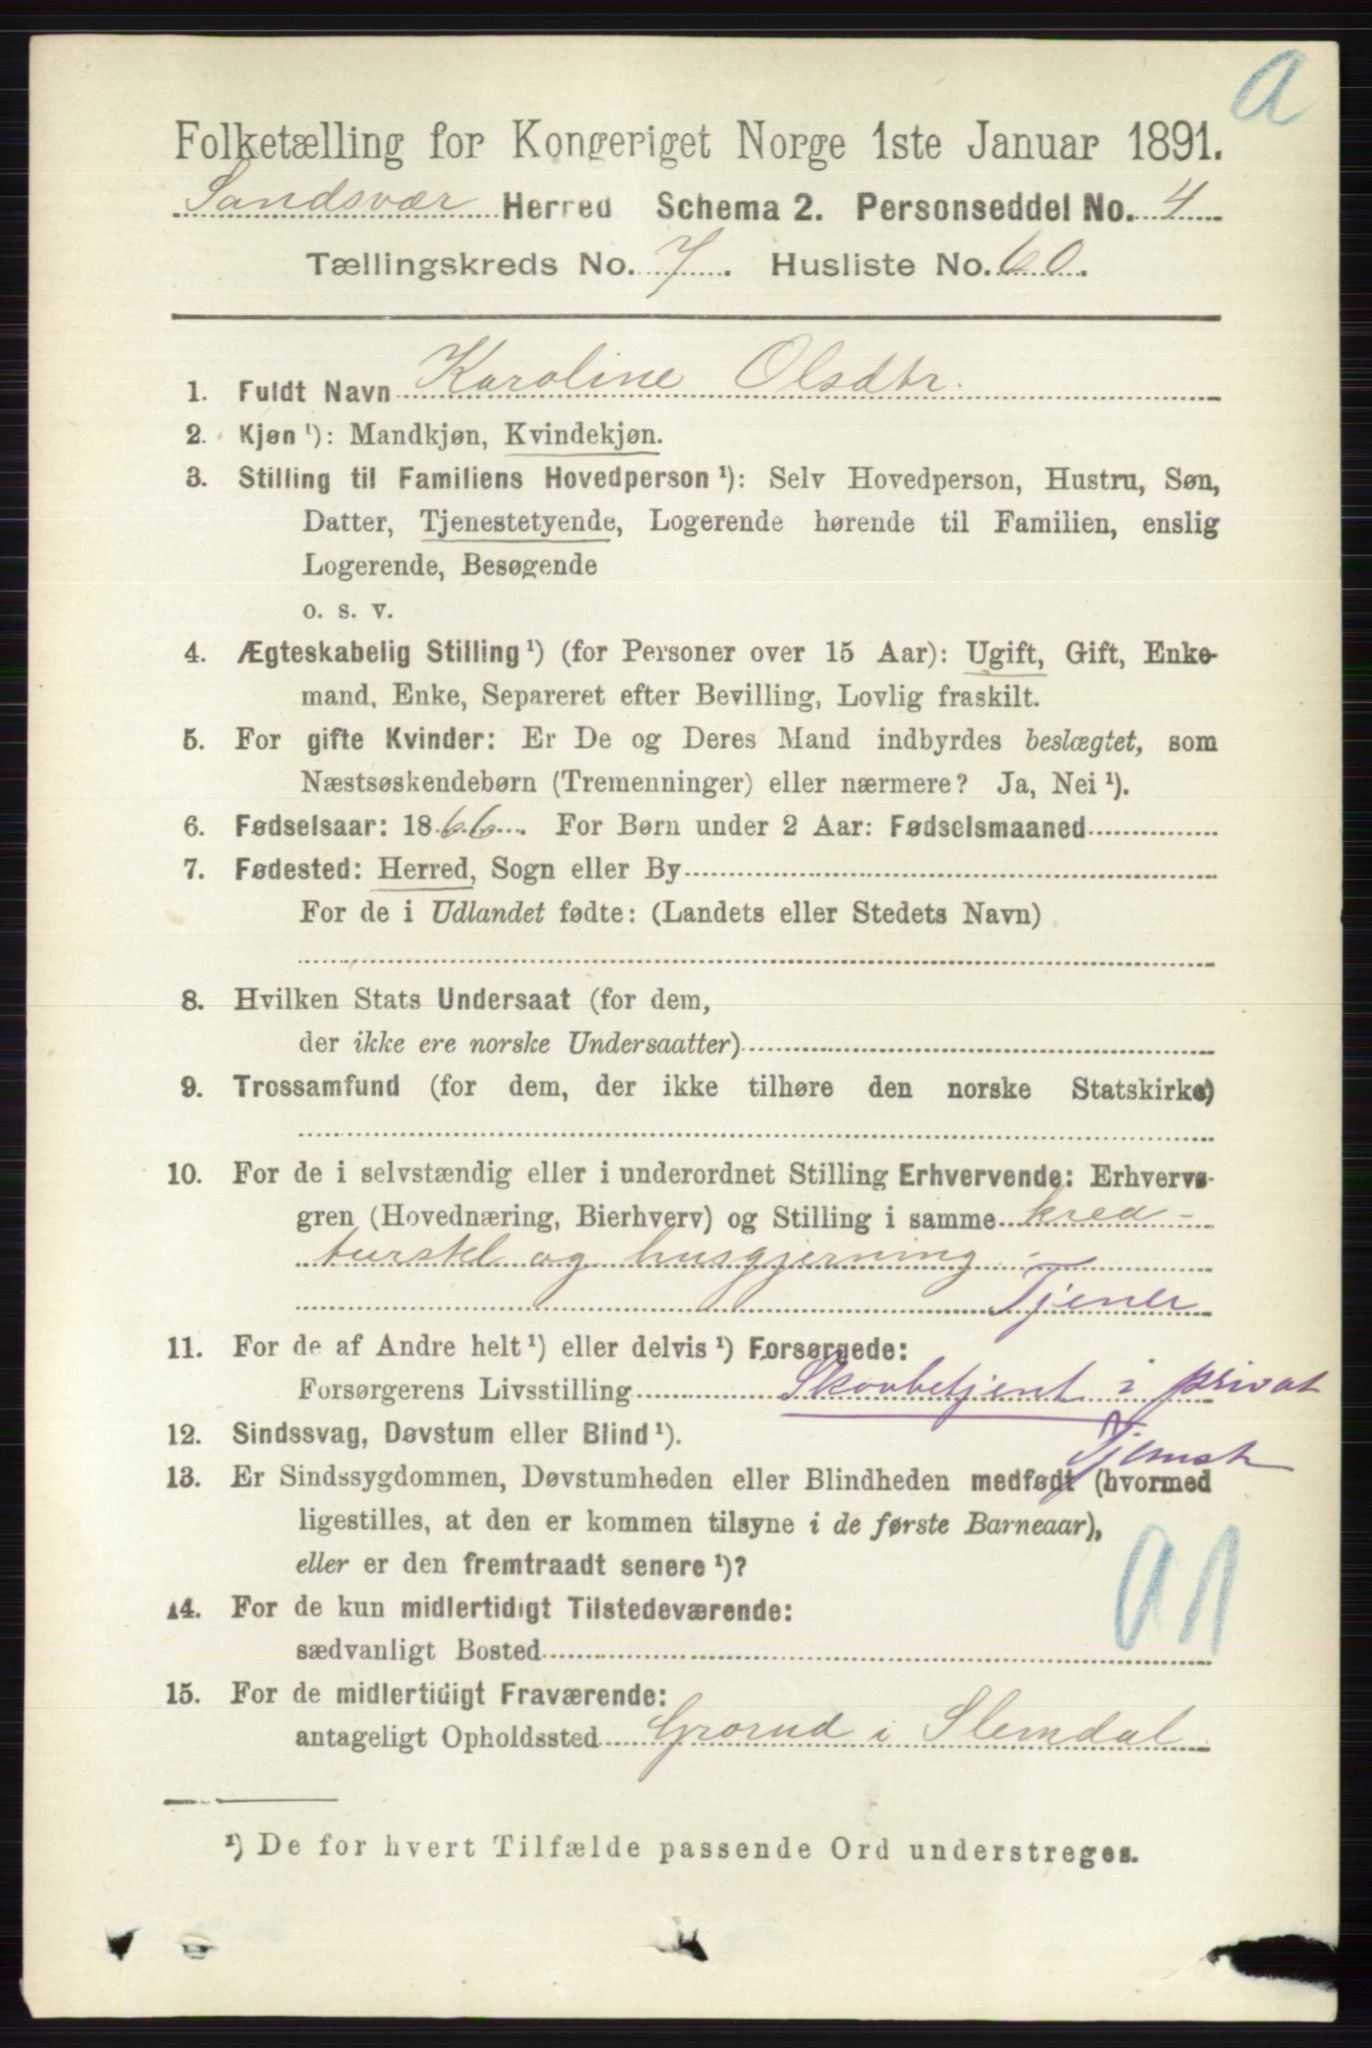 a
Folketælling for Kongeriget Norge 1ste Januar 1891.
Sandsvær Herred Schema 2. Personseddel No. 4
Tællingskreds No. 7. Husliste No. 60.
1. Fuldt Navn Karoline Olsdtr.
2. Kjøn ¹): Mandkjøn, Kvindekjøn.
3. Stilling til Familiens Hovedperson ¹): Selv Hovedperson, Hustru, Søn,
Datter, Tjenestetyende, Logerende hørende til Familien, enslig
Logerende, Besøgende
o. s. v.
4. Ægteskabelig Stilling ¹) (for Personer over 15 Aar): Ugift, Gift, Enke-
mand, Enke, Separeret efter Bevilling, Lovlig fraskilt.
5. For gifte Kvinder: Er De og Deres Mand indbyrdes beslægtet, som
Næstsøskendebørn (Tremenninger) eller nærmere? Ja, Nei ¹).
6. Fødselsaar: 1866. For Børn under 2 Aar: Fødselsmaaned
7. Fødested: Herred, Sogn eller By
For de i Udlandet fødte: (Landets eller Stedets Navn)
8. Hvilken Stats Undersaat (for dem,
der ikke ere norske Undersaatter)
9. Trossamfund (for dem, der ikke tilhøre den norske Statskirke)
10. For de i selvstændig eller i underordnet Stilling Erhvervende: Erhvervs-
gren (Hovednæring, Bierhverv) og Stilling i samme krea-
turstel og husgjerning.
Tjener
11. For de af Andre helt ¹) eller delvis ¹) Forsørgede:
Forsørgerens Livsstilling Skovbetjent i privat
Tjenst
12. Sindssvag, Døvstum eller Blind ¹).
13. Er Sindssygdommen, Døvstumheden eller Blindheden medfødt (hvormed
ligestilles, at den er kommen tilsyne i de første Barneaar),
eller er den fremtraadt senere ¹)?
14. For de kun midlertidigt Tilstedeværende:
sædvanligt Bosted
15. For de midlertidigt Fraværende:
antageligt Opholdssted Grorud i Slemdal
¹) De for hvert Tilfælde passende Ord understreges.